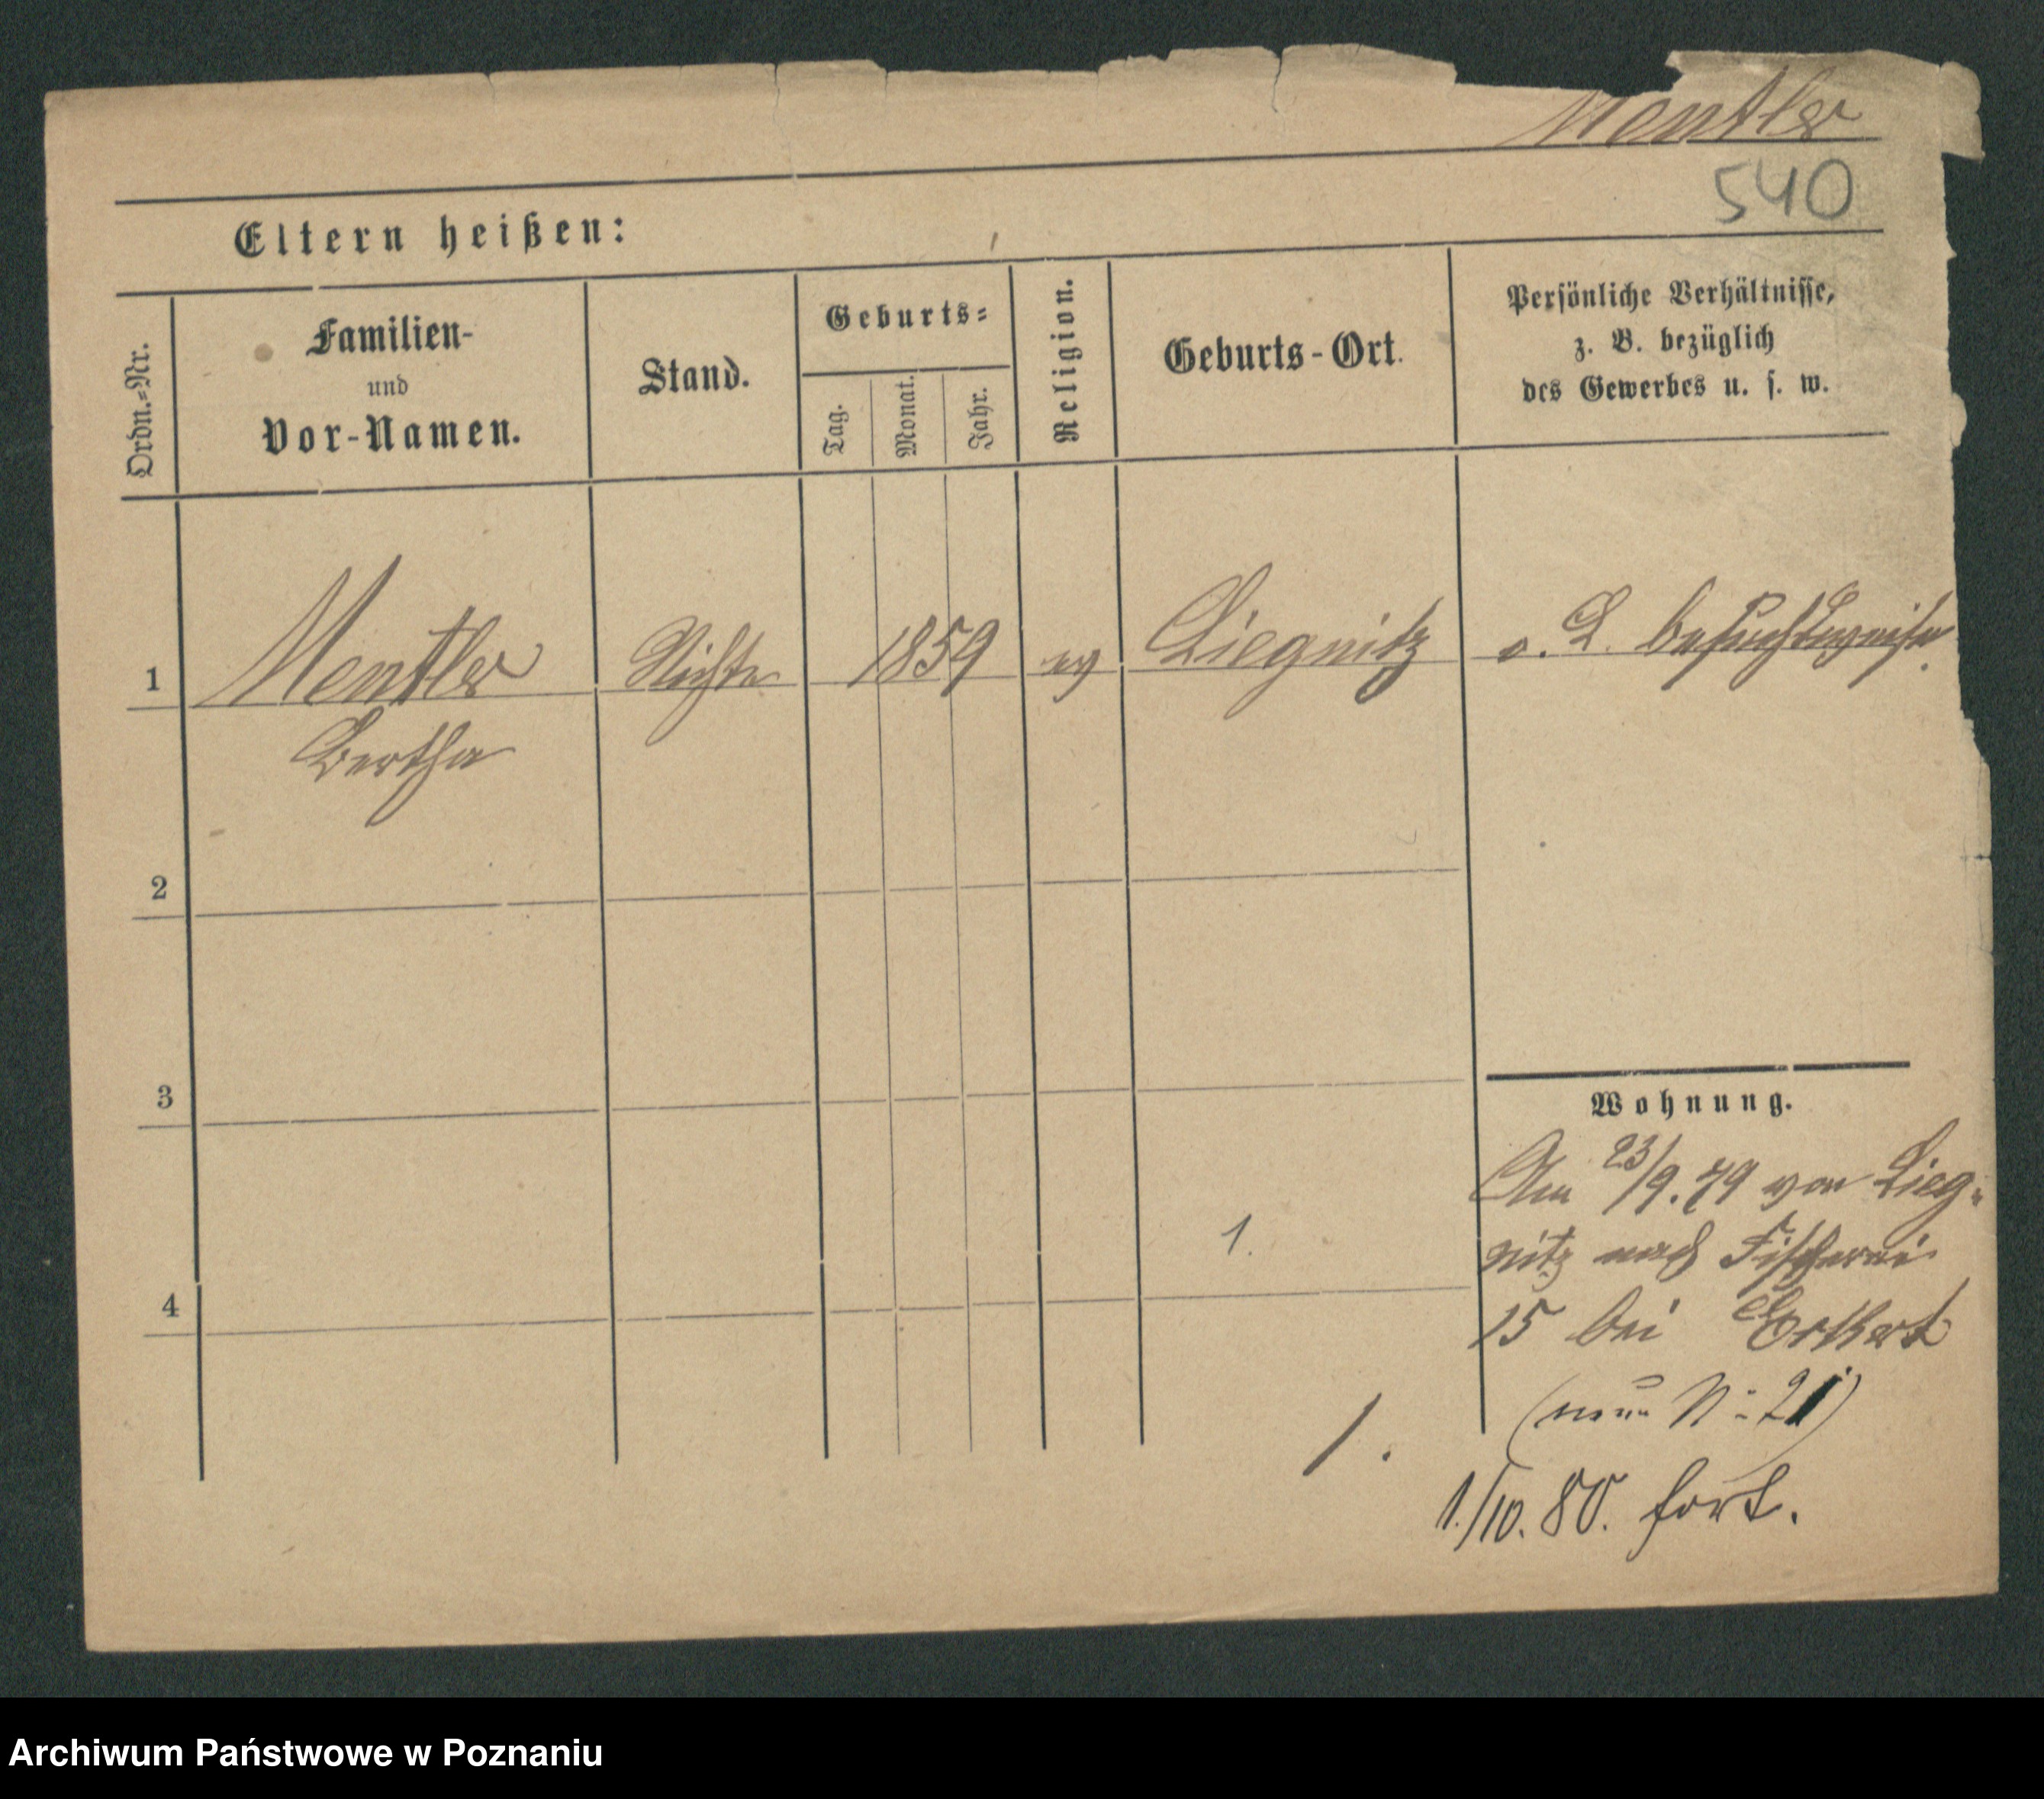 Mentler
540
Eltern heißen:
Ordn.-Nr.
Familien-
und
Vor-Namen.
Stand.
Geburts-
Tag.
Monat.
Jahr.
Religion.
Geburts-Ort.
Persönliche Verhältnisse,
z. B. bezüglich
des Gewerbes u. s. w.
1 Mentler Nichte 1859 ev Liegnitz o. L. besuchsweise
Bertha
2
3
4
Wohnung.
Am 23/9.79 von Lieg-
nitz nach Fischerei
15 bei
(neue N: 21)
1.
1.
1./10.80. fort.
Archiwum Państwowe w Poznaniu